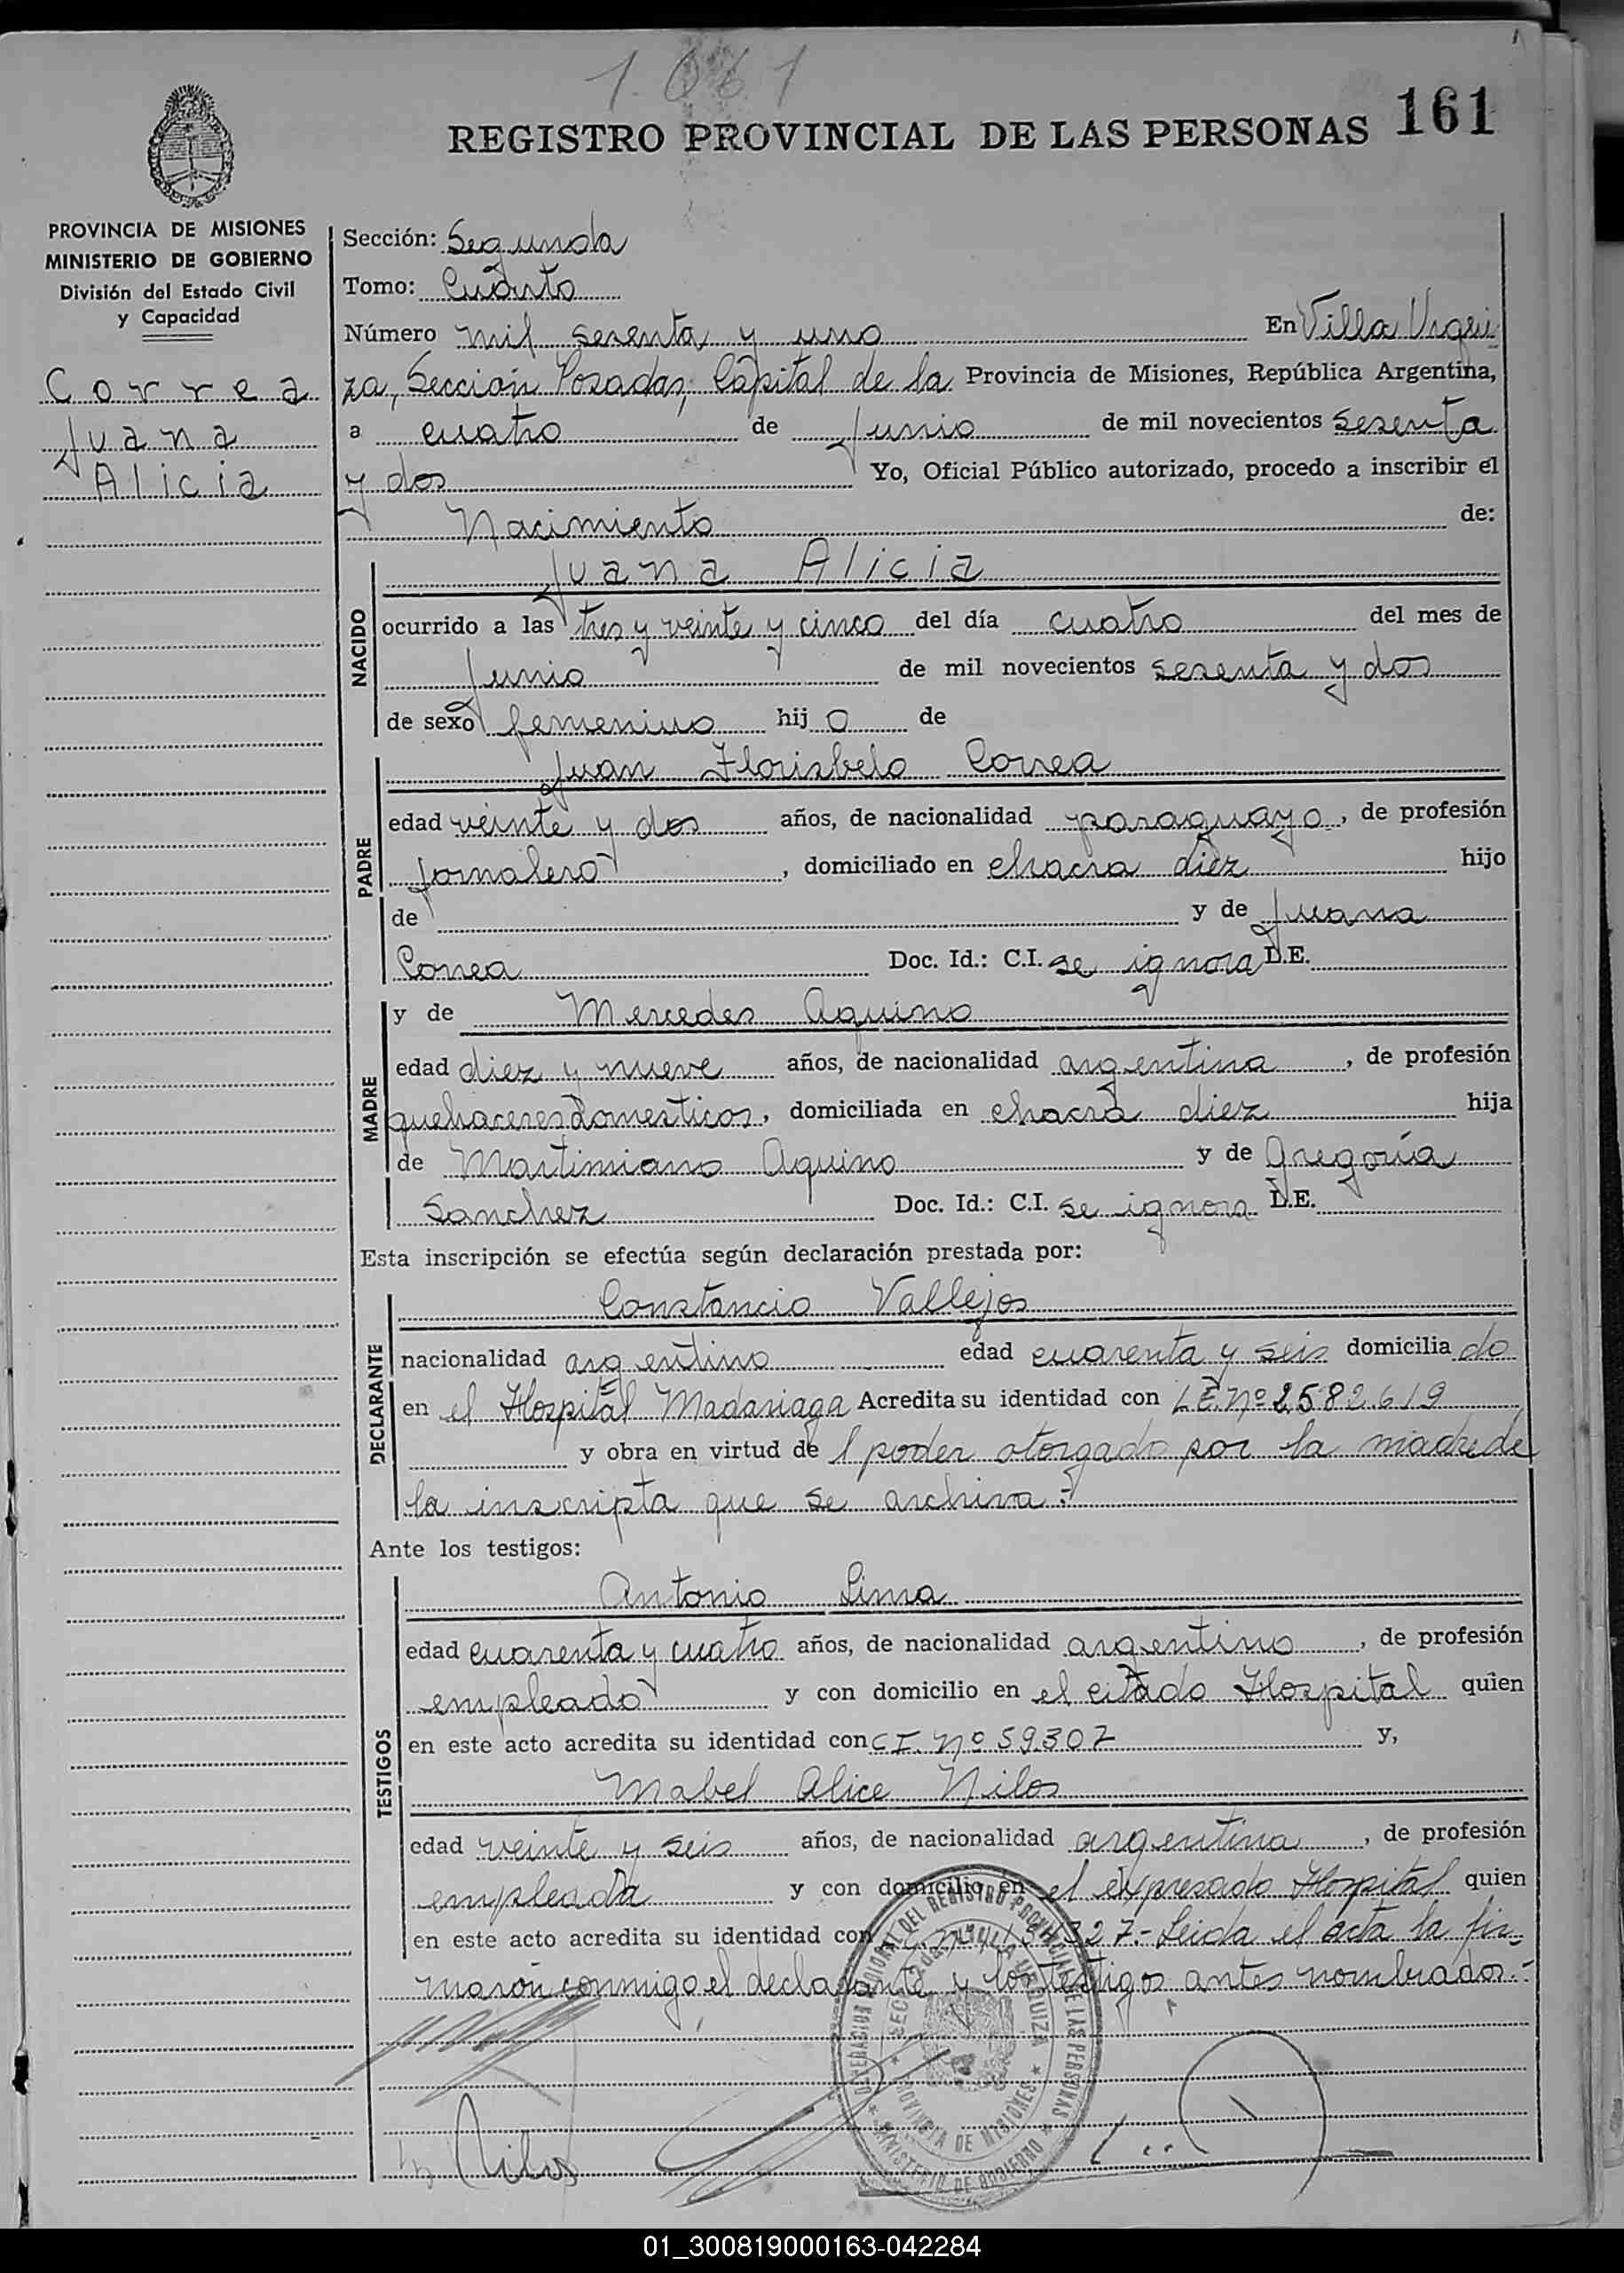 1.061
REGISTRO PROVINCIAL DE LAS PERSONAS 161
PROVINCIA DE MISIONES
MINISTERIO DE GOBIERNO
División del Estado Civil
y Capacidad
Correa
Juana
Alicia
Sección: Segunda
Tomo: Cuarto
Número mil sesenta y uno En Villa Urqui
za, Sección Posadas, Capital de la Provincia de Misiones, República Argentina,
a cuatro de Junio de mil novecientos sesenta
y dos Yo, Oficial Público autorizado, procedo a inscribir el
Nacimiento de:
NACIDO
Juana Alicia
ocurrido a las tres y veinte y cinco del día cuatro del mes de
Junio de mil novecientos sesenta y dos
de sexo femenino hij o de
PADRE
Juan Florisbelo Correa
edad veinte y dos años, de nacionalidad paraguayo, de profesión
jornalero, domiciliado en chacra diez hijo
de y de Juana
Correa Doc. Id.: C.I. se ignora L.E.
MADRE
y de Mercedes Aquino
edad diez y nueve años, de nacionalidad argentina, de profesión
quehaceres domesticos, domiciliada en chacra diez hija
de Martimiano Aquino y de Gregoria
Sanchez Doc. Id.: C.I. se ignora L.E.
Esta inscripción se efectúa según declaración prestada por:
DECLARANTE
Constancio Vallejos
nacionalidad argentino edad cuarenta y seis domicilia do
en el Hospital Madariaga Acredita su identidad con L.E. Nº 2582.619
y obra en virtud de l poder otorgado por la madre de
la inscripta que se archiva.-
Ante los testigos:
TESTIGOS
Antonio Lima
edad cuarenta y cuatro años, de nacionalidad argentino, de profesión
empleado y con domicilio en el citado Hospital quien
en este acto acredita su identidad con C.I. Nº 59.307 y,
Mabel Alice Nilos
edad veinte y seis años, de nacionalidad argentina, de profesión
empleada y con domicilio en el expresado Hospital quien
en este acto acredita su identidad con 327.- Leida el acta la fir-
maron conmigo el declarante y los testigos antes nombrados.-
Nilos
DEL REGISTRO PROVINCIAL DE LAS PERSONAS
MINISTERIO DE GOBIERNO
PROVINCIA DE MISIONES
01_300819000163-042284